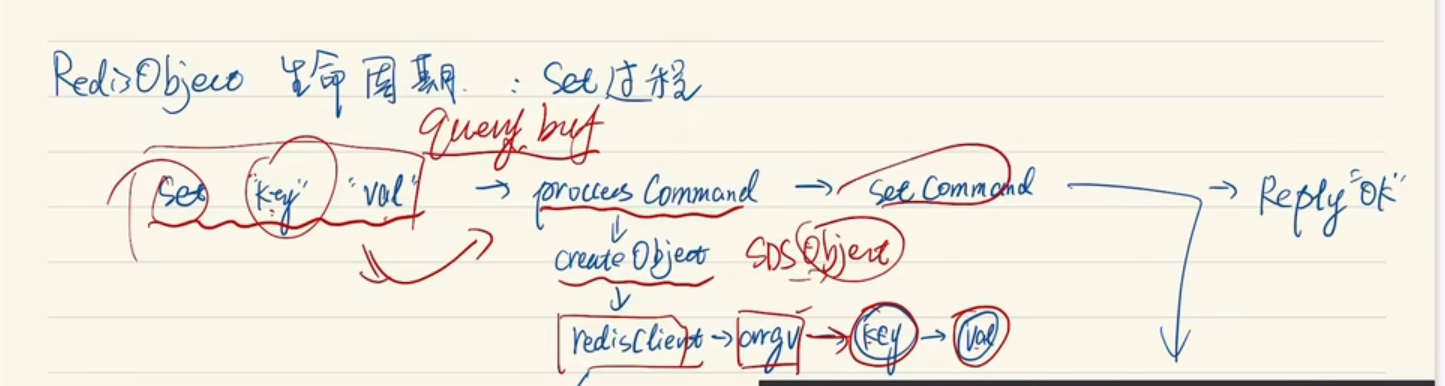 RedisObject 生命周期 : Set过程
query buf
Set "key" "val" → process Command → set Command → Reply "OK"
↓
create Object SDS Object
↓
redisClient → argv → key → val